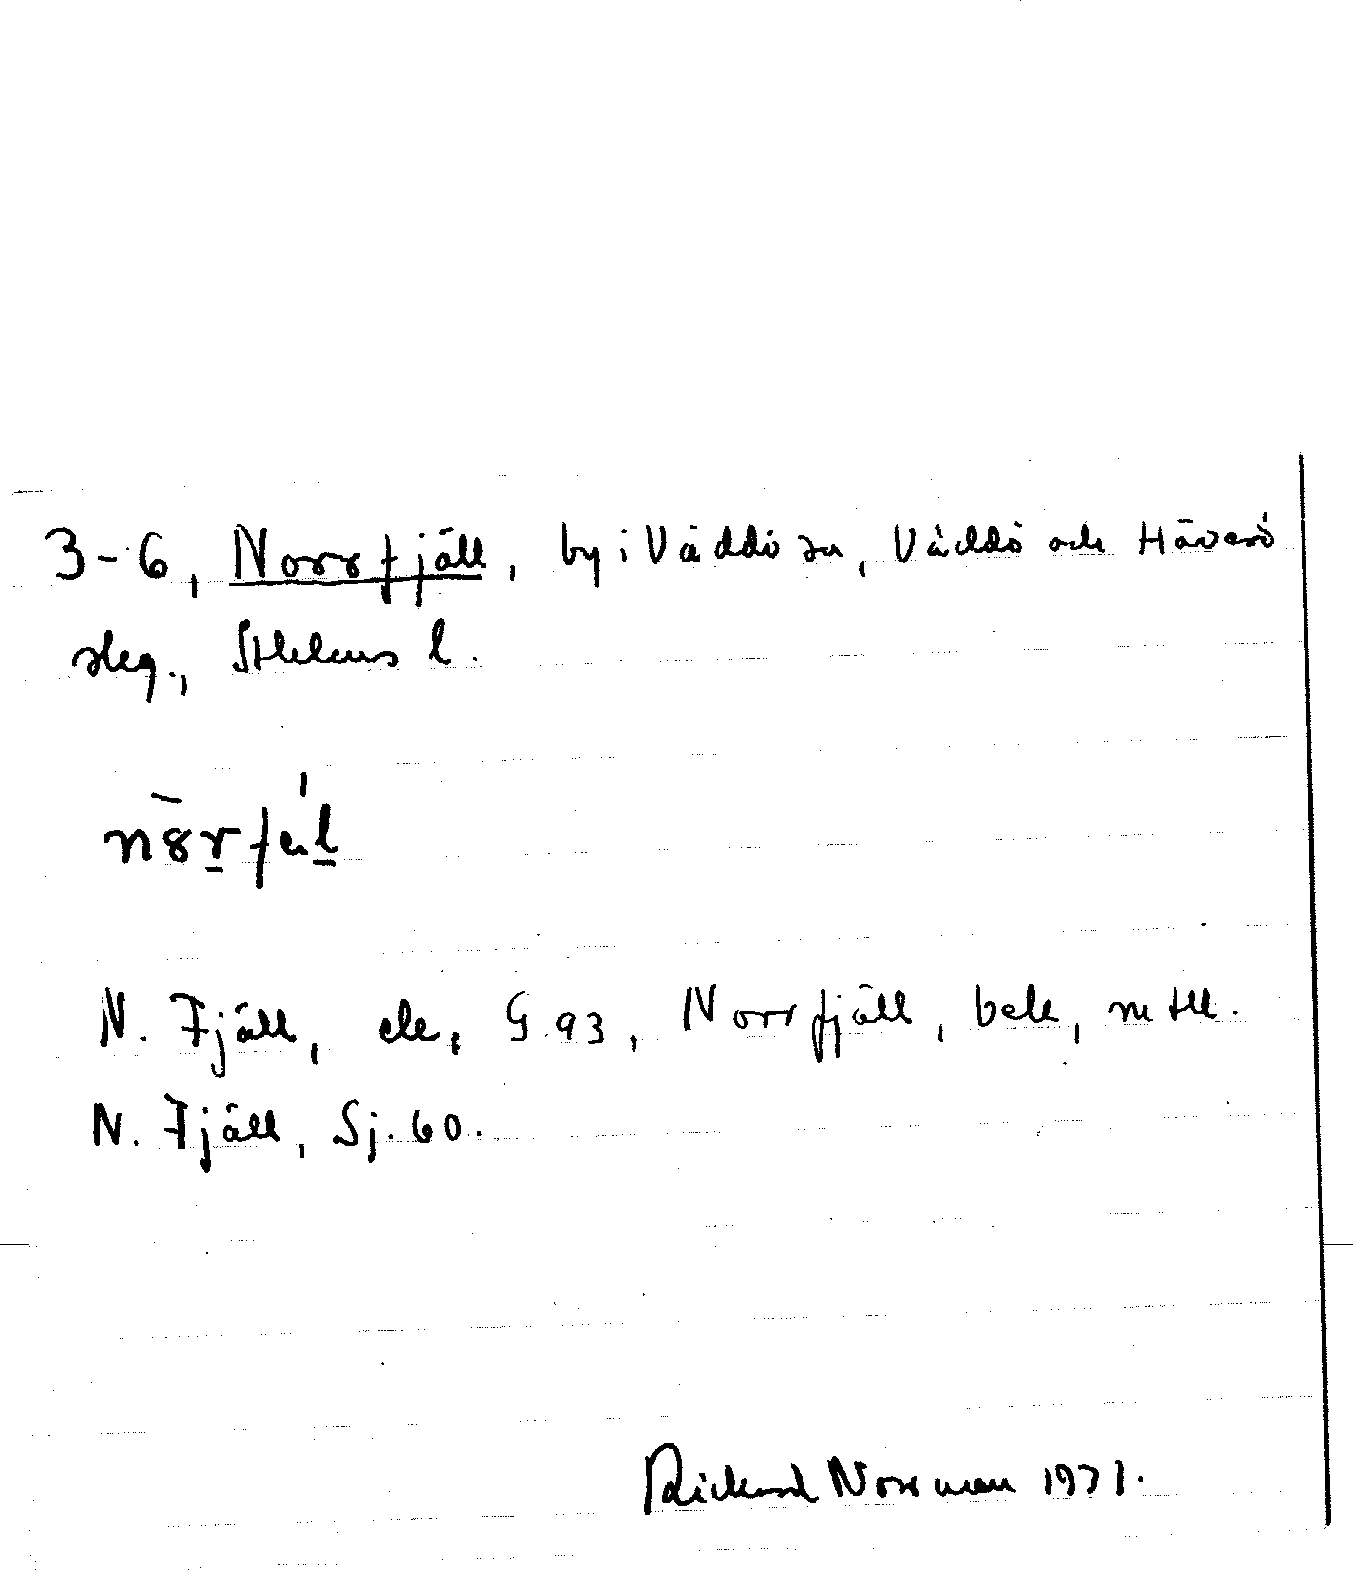 3-6, Norrfjäll, by i Väddö sn, Väddö och Häverö
skg., Sthlms l.
N. Fjäll, ek, G 93, Norrfjäll, bek, mtll.
N. Fjäll, Sj. 60.
Rickard Norrman 1971.